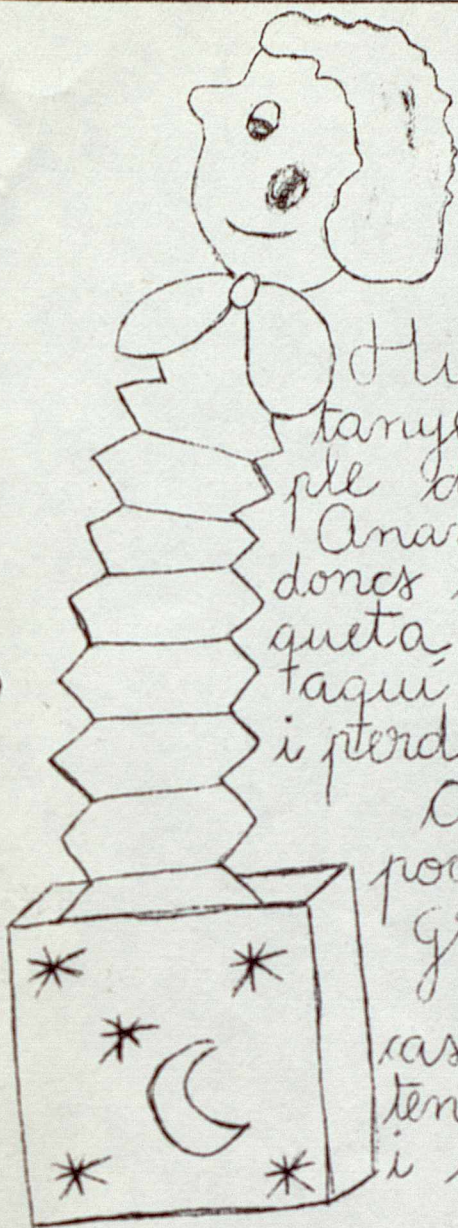 Hi
tanye
ple d
Anar
doncs
queta
aquí
i perd
por
G
cas
ten
i